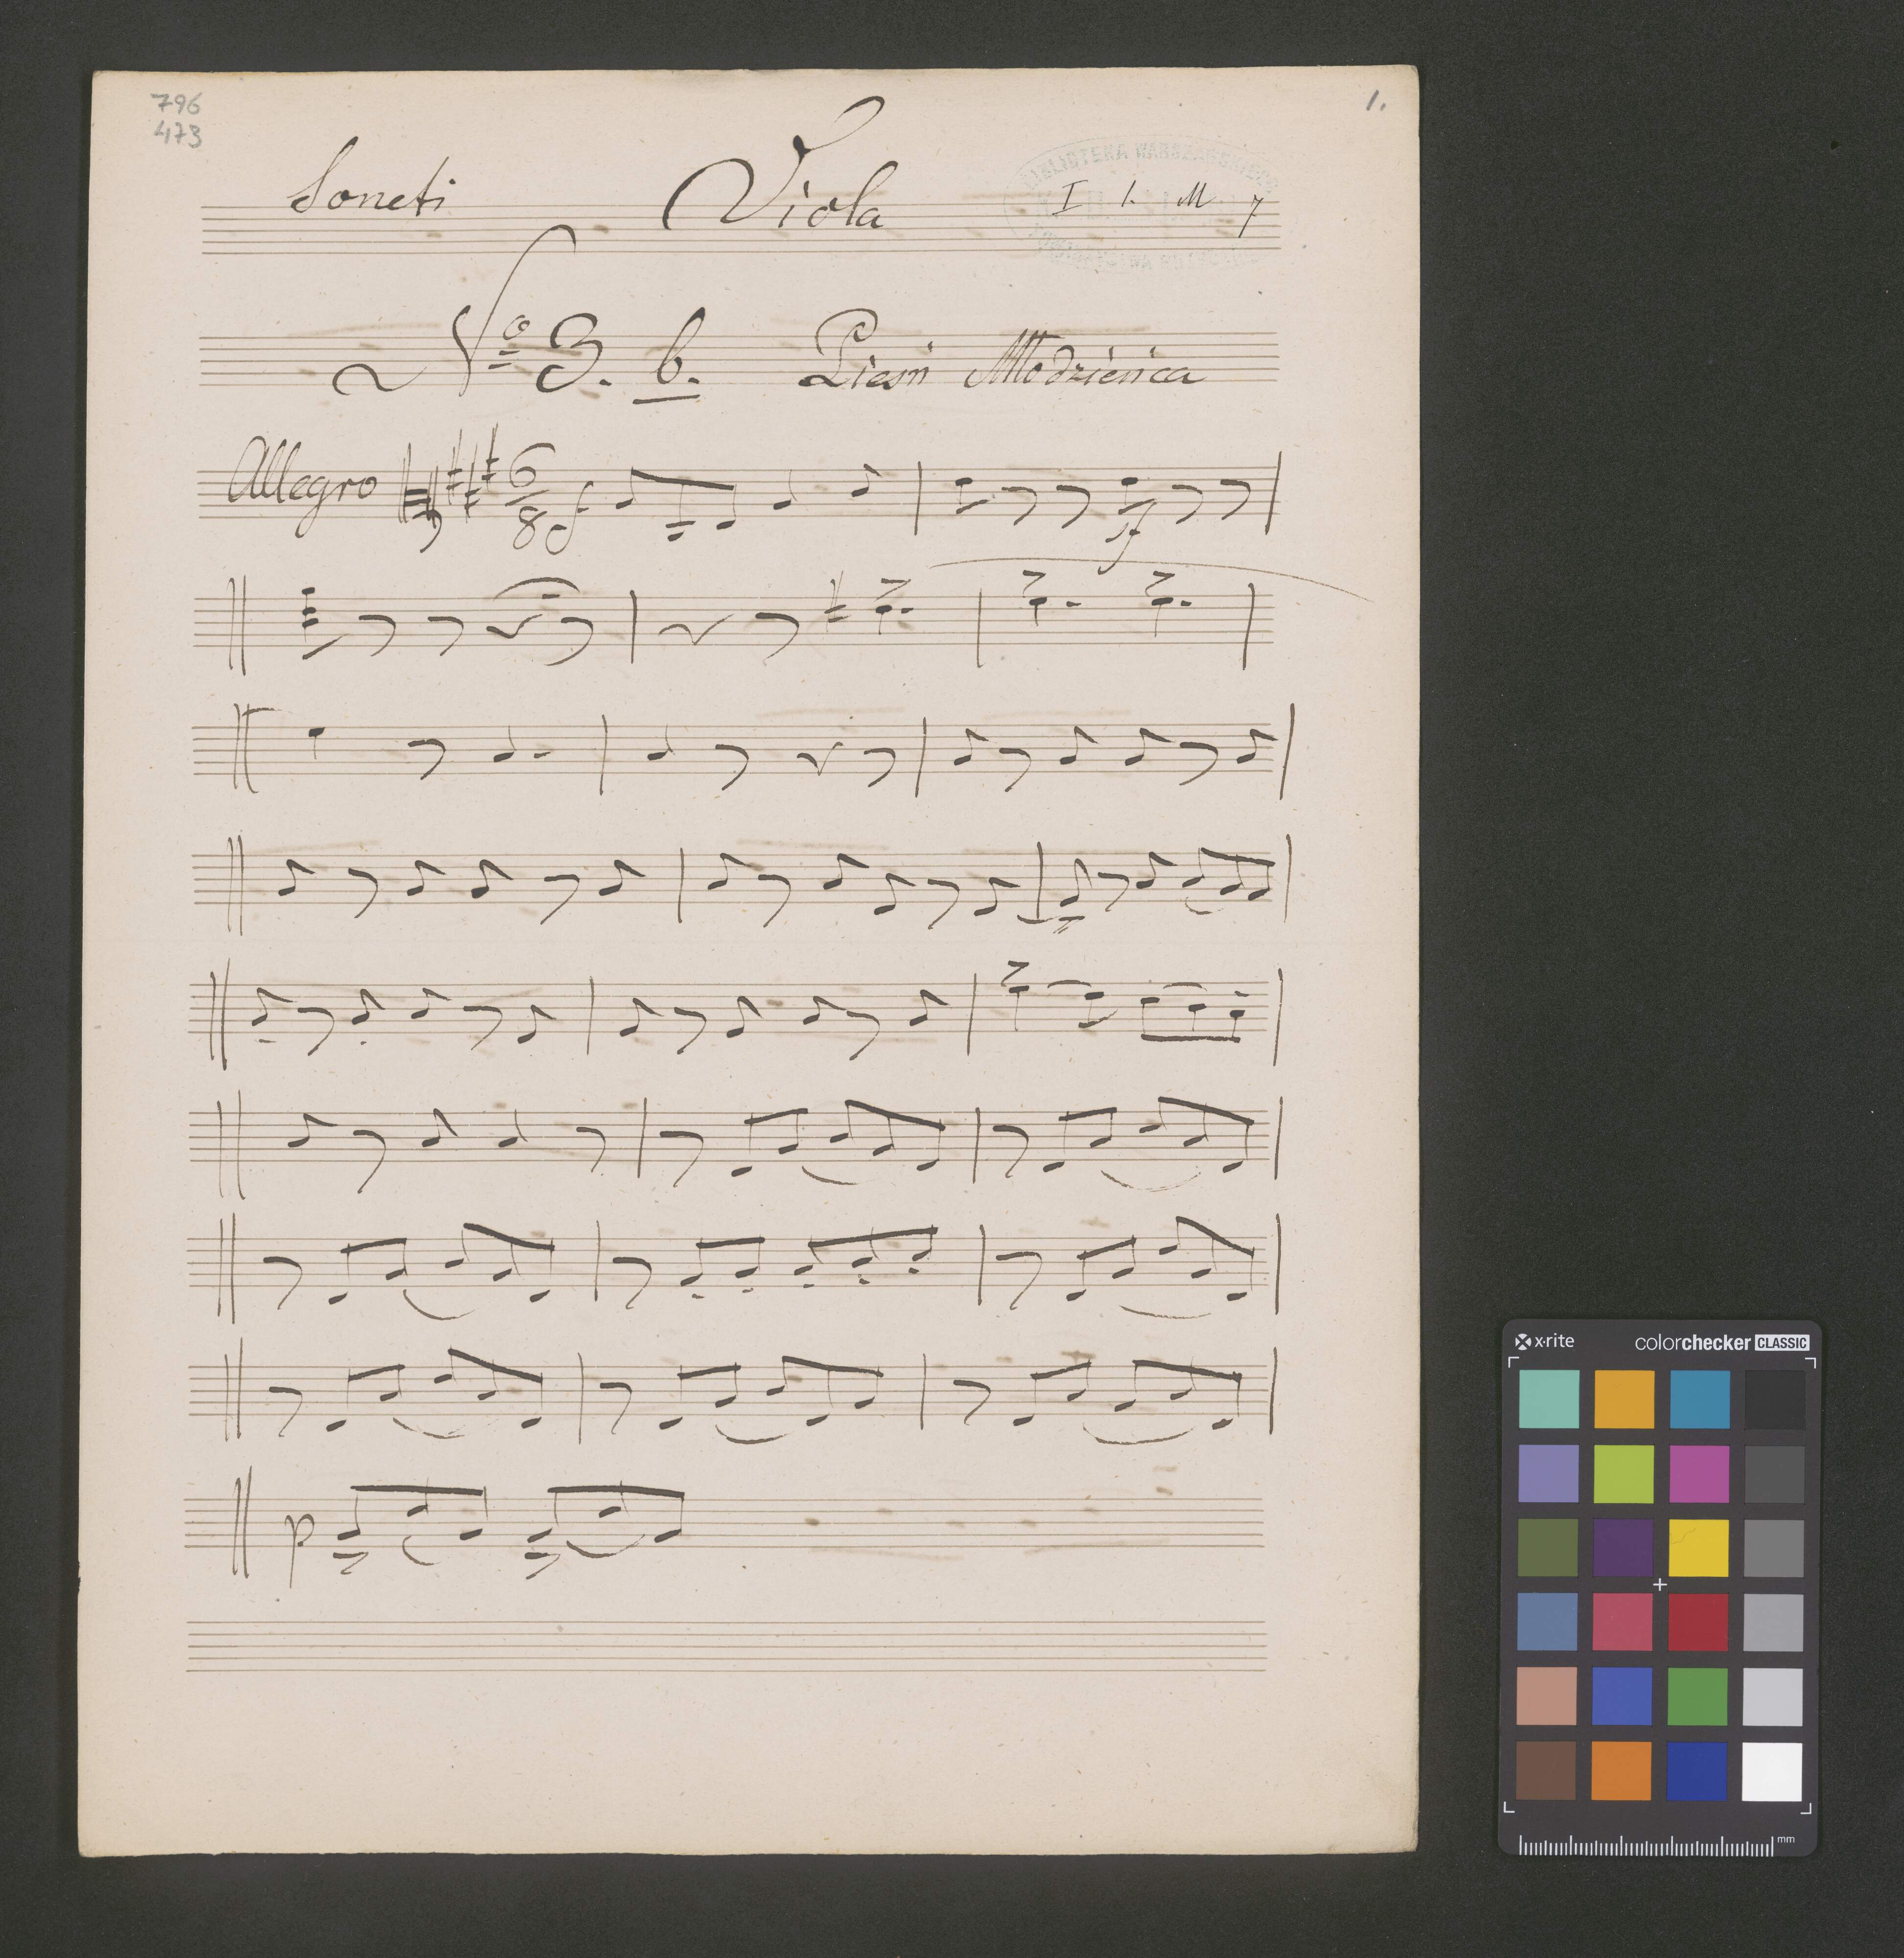 796
473
1.
Soneti Viola I 1. M 7
BIBLIOTEKA WARSZAWSKIEGO
No 3. b. Pieśń Młodzieńca
Allegro 6/8 f
sf
p
x-rite colorchecker CLASSIC
mm